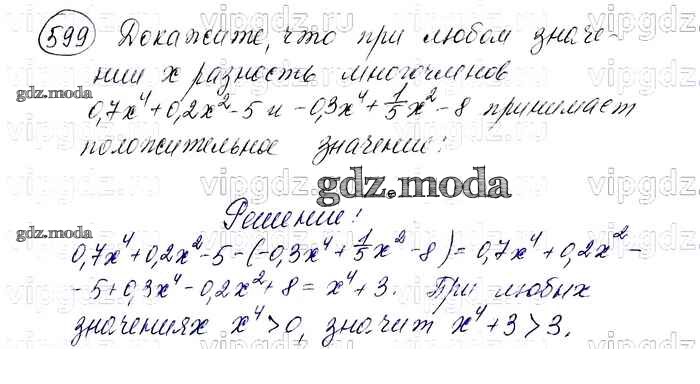 599 Докажите, что при любом значе-
нии x разность многочленов
gdz.moda
0,7x⁴+0,2x²-5 и -0,3x⁴+1/5x²-8 принимает
положительное значение:
gdz.moda
Решение:
gdz.moda
0,7x⁴+0,2x²-5-(-0,3x⁴+1/5x²-8)=0,7x⁴+0,2x²-
-5+0,3x⁴-0,2x²+8=x⁴+3. При любых
значениях x⁴>0, значит x⁴+3>3.